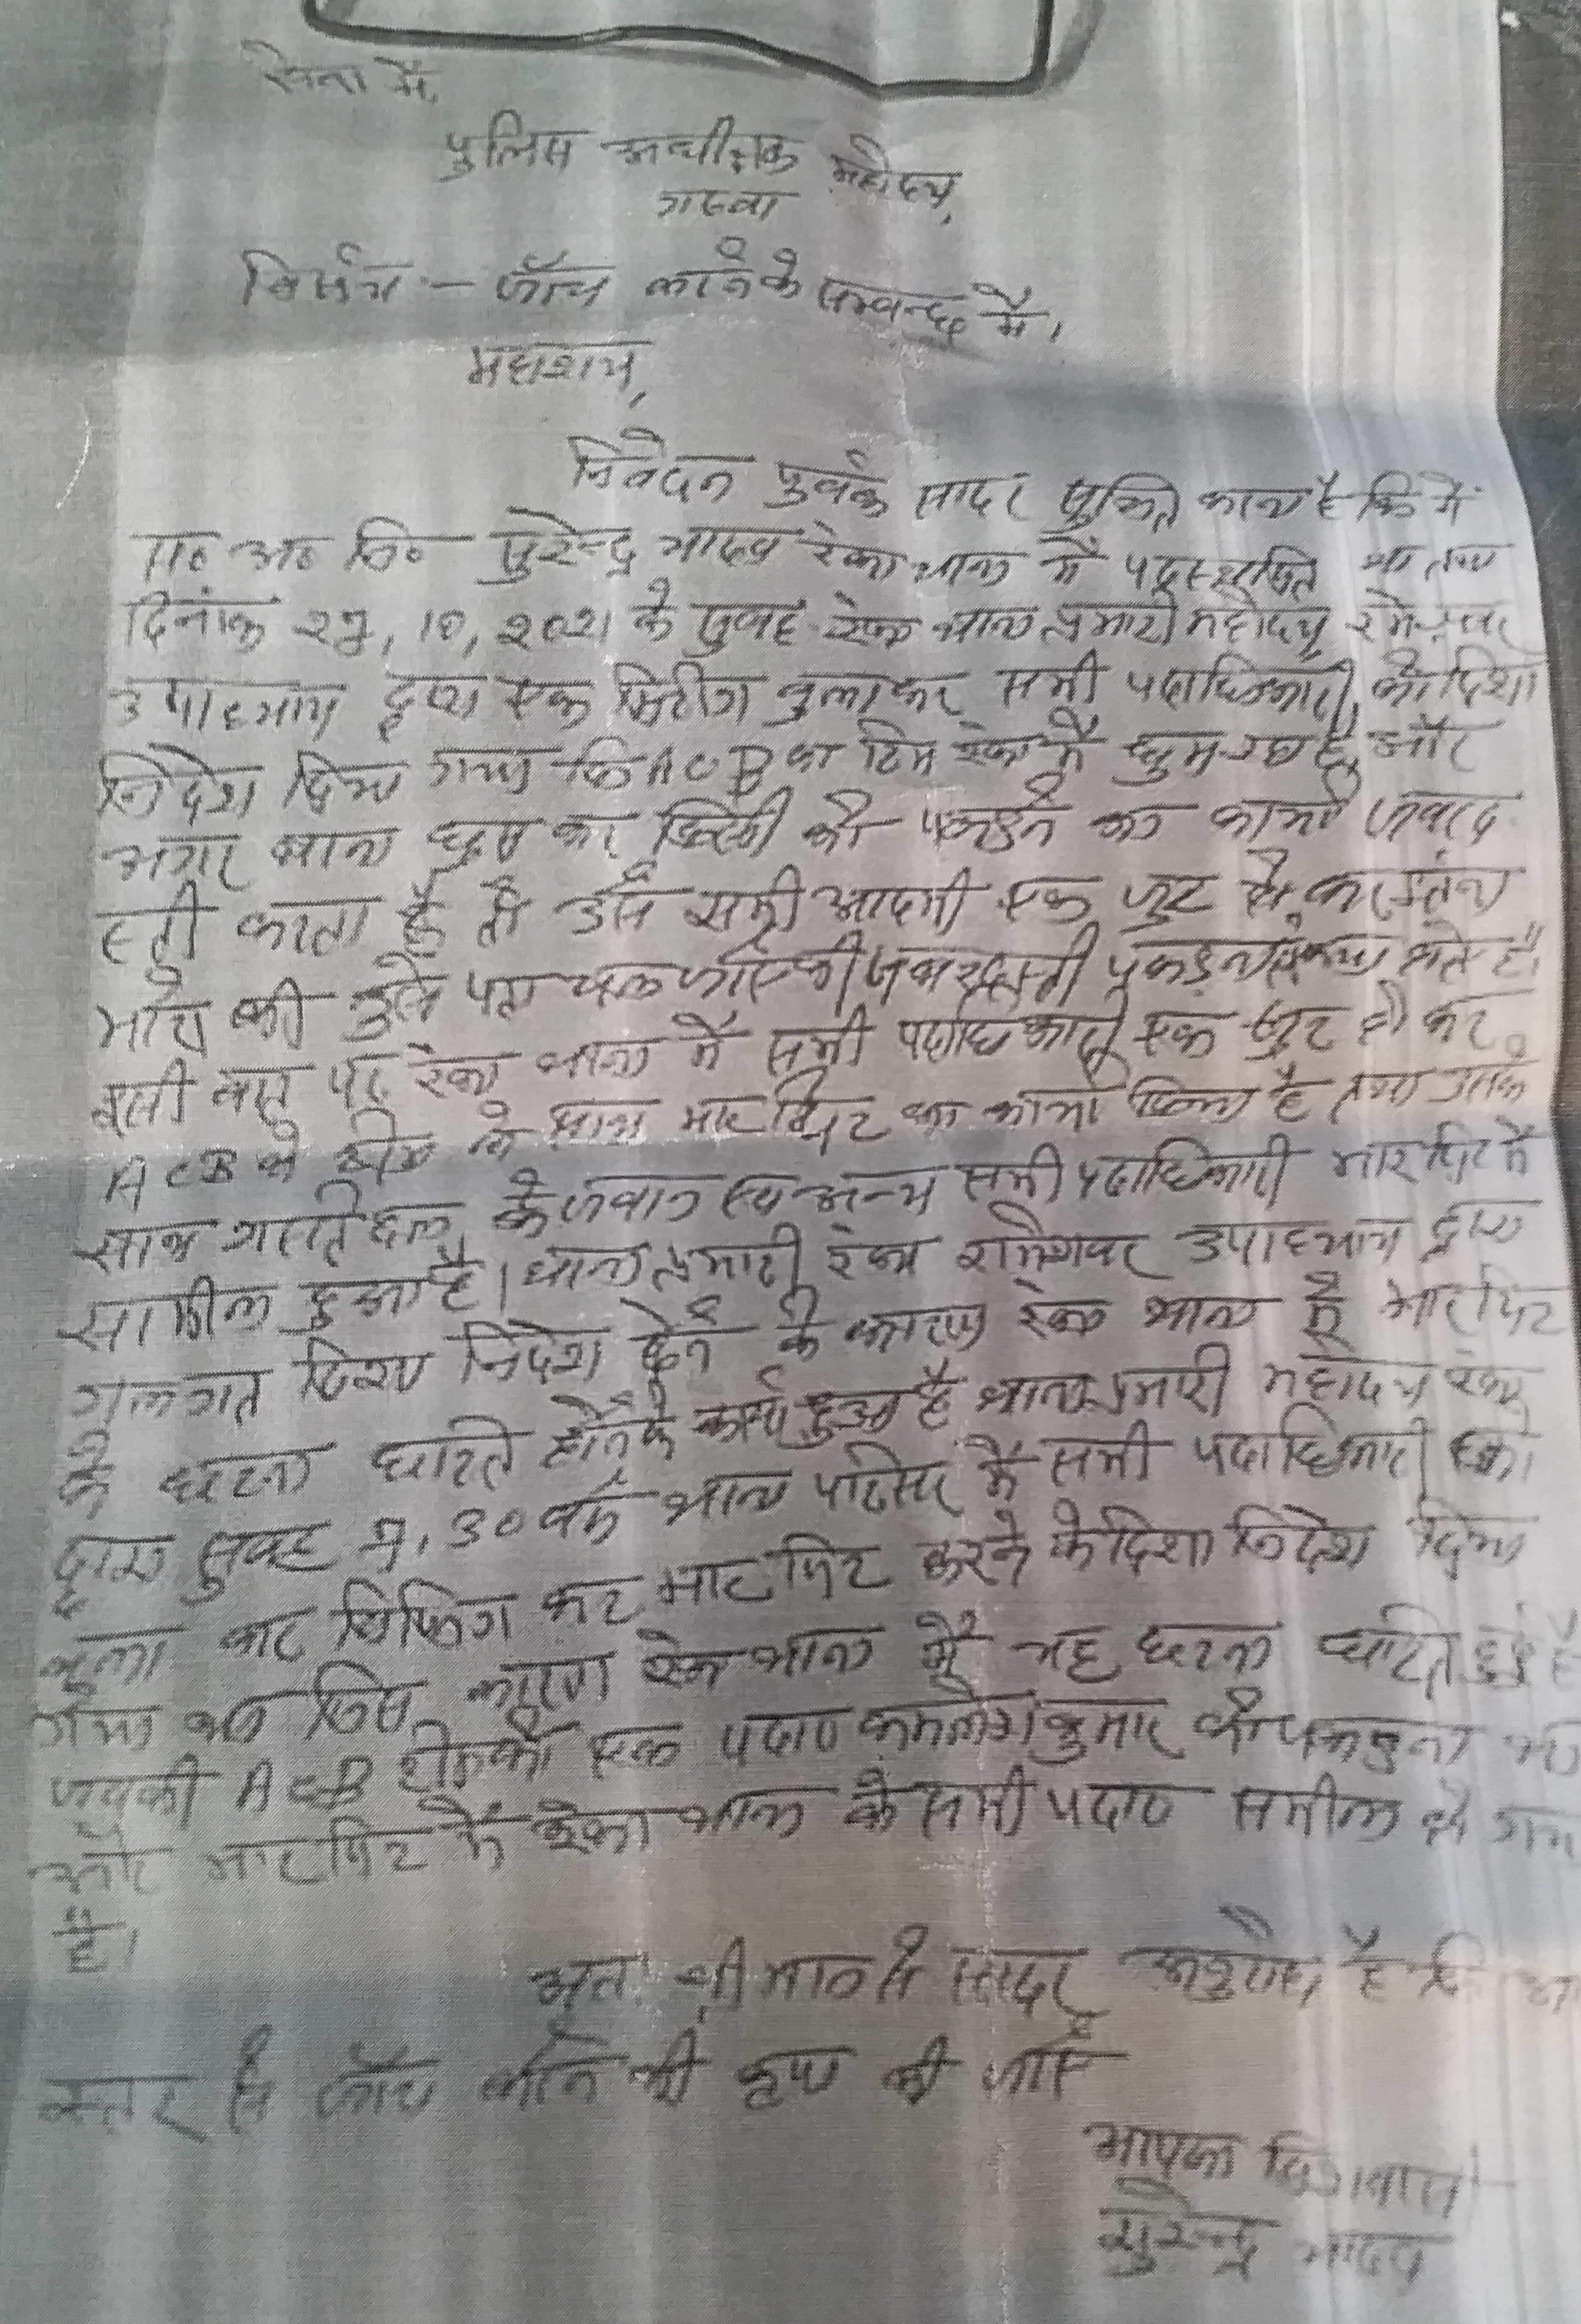 सेवा में,
पुलिस अधीक्षक महोदय,
गढवा
विषय :- जाँच करने के सम्बन्ध में।
महाशय,
निवेदन पुर्वक सादर सुचित करना है कि मैं
स० अ० नि० सुरेन्द्र यादव रंका थाना में पदस्थापित था तथा
दिनांक 27,10,2021 के सुबह रंका थाना प्रभारी महोदय, रामेश्वर
उपाध्याय द्वारा एक मिटिंग बुलाकर सभी पदाधिकारी को दिशा
निर्देश दिया गया कि ACB का टिम रंका में घुम रहा है और
अगर थाना घुस कर किसी को पकड़ने का कार्य जबरद
स्ती करता है तो उसे सभी आदमी एक जुट हो कर इतना
मारो की उसे पता चल जाए की जबरदस्ती पकड़ना क्या होता है।
इसी बात पर रंका थाना में सभी पदाधिकारी एक जुट हो कर
ACB के टीम के साथ मारपिट का कार्य किया है तथा उसके
साथ गस्ती दल के जवान एव अन्य सभी पदाधिकारी मारपिट में
सामील हुआ है। थाना प्रभारी रंका रामेश्वर उपाध्याय द्वारा
गलत दिशा निर्देश देने के कारण रंका थाना में मारपिट
के घटना घटित होने के कार्य हुआ है थाना प्रभारी महोदय रंका
द्वारा सुबह 7.30 बजे थाना परिसर में सभी पदाधिकारी को
बुला कर ब्रिफिंग कर मारपिट करने के दिशा निर्देश दिया
गया था जिस कारण रंका थाना में यह घटना घटित हुई है
जबकी ACB टीम को एक पदा० कमलेश कुमार को पकड़ना था
और मारपिट में रंका थाना के सभी पदा० समील हो गया
है।
अतः श्रीमान से सादर अनुरोध है कि
स्तर से जाँच करने की कृपा की जाए
आपका विश्वासी
सुरेन्द्र यादव